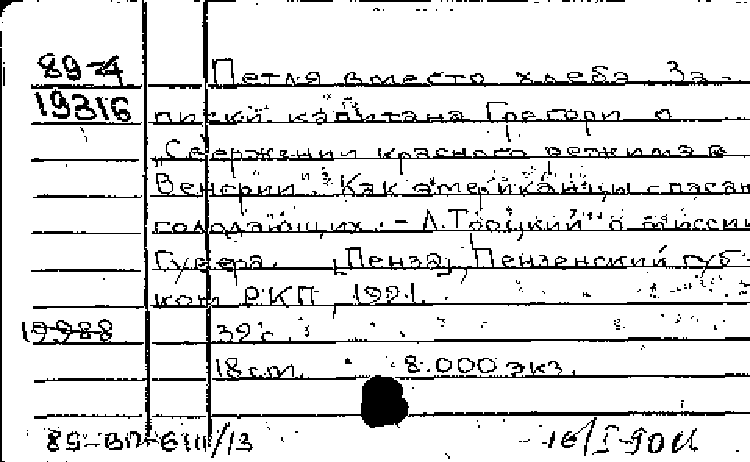 89-4
19316
Петля вместо хлеба. За-
писки капитана Грегори о
"Свержении красного режима в
Венгрии". Как американцы спасали
голодающих. - Л. Троцкий о миссии
Гувера. [Пенза], Пензенский губ-
ком РКП, 1921.
19988
39с.
18 см. 8.000 экз.